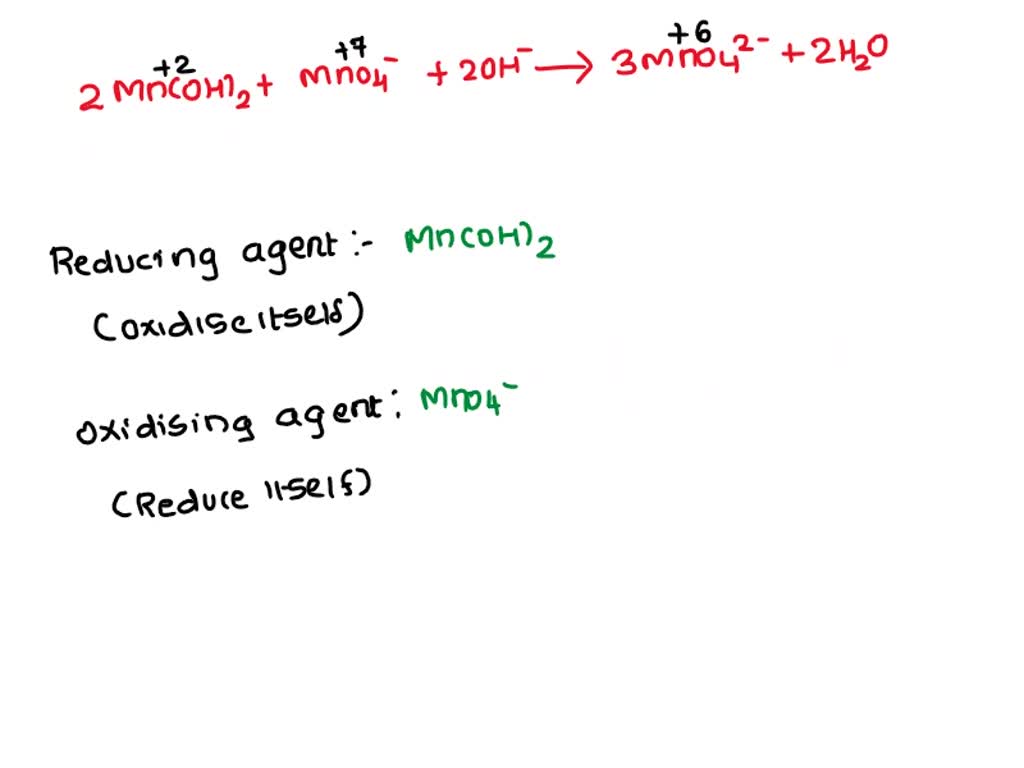 +2 +7 +6
2 Mn(OH)2 + MnO4⁻ + 2OH⁻ ⟶ 3MnO4²⁻ + 2H2O
Reducing agent :- Mn(OH)2
(oxidise itself)
oxidising agent : MnO4⁻
(Reduce itself)